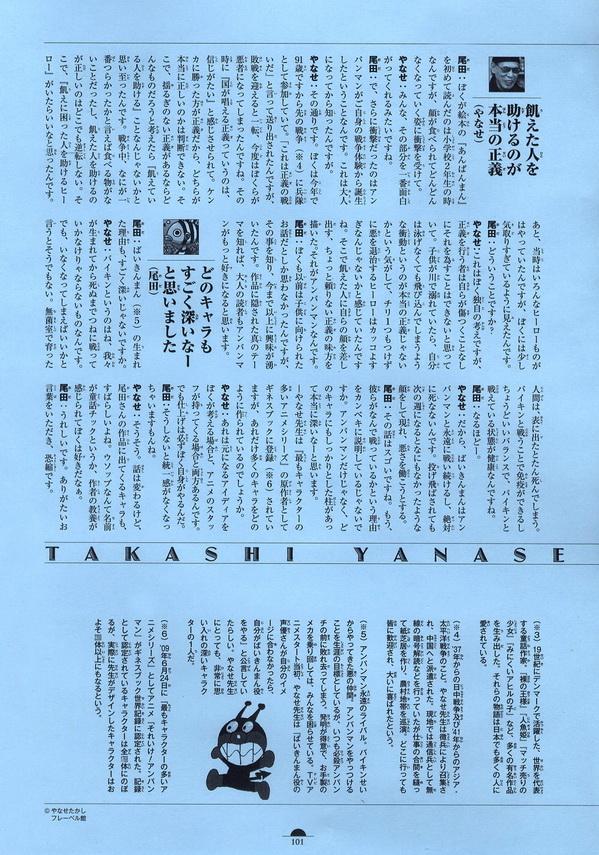 飢えた人を
助けるのが
本当の正義
(やなせ)
尾田：ぼくが絵本の「あんぱんまん」
を初めて読んだのは小学校2年生の時
なんですが、顔が食べられてどんどん
なくなっていく姿に衝撃を受けて。
やなせ：みんな、その部分を一番面白
がってくれるみたいですね。
尾田：で、さらに衝撃だったのはアン
パンマンがご自身の戦争体験から誕生
したということなんです。これは大人
になってから知ったんですが。
やなせ：その通りです。ぼくは今年で
91歳ですから先の戦争（※4）に兵隊
として参加していて。「これは正義の戦
いだ」と言って送り出されたんですが、
敗戦を迎えると一転、今度はぼくらが
悪者になってしまったんですね。その
時に「国が唱える正義っていうのは、
信じがたい」と感じさせられて。ケン
カに勝った方が正義だから、どちらが
本当に正しいのかは判断できない。そ
こで、揺るぎのない正義があるならど
んなものだろうと考えたら「飢えてい
る人を助ける」ことなんじゃないかと
思い至ったんです。戦争中、なにが一
番つらかったかと言えば食べる物がな
いことだったし、飢えた人を助けるの
が正しいのはどこでも逆転しない。そ
こで、「飢えに困った人を助けるヒー
ロー」がいたらいいなと思ったんです。
あと、当時はいろんなヒーローものが
はやっていたんですが、ぼくには少し
気取りすぎているように見えたんです。
尾田：どういうことですか？
やなせ：これはぼく独自の考えですが、
正義を行う者は自らが傷つくことなし
にそれを為すことはできないと思って
いて。子供が川で溺れていたら、自分
は泳げなくても飛び込んでしまうよう
な衝動というのが本当の正義じゃない
かという気がして、チリ一つもつけず
に悪を退治するヒーローはカッコよす
ぎなんじゃないかと感じていたんです
ね。そこで飢えた人に自らの顔を差し
出す、ちょっと頼りない正義の味方を
描いた。それがアンパンマンなんです。
尾田：ぼくも以前は子供に向けられた
お話だとしか思わなかったんですが、
その事を知り、今まで以上に興味が湧
いたんです。作品に隠された真のテー
マを知れば、大人の読者もアンパンマ
ンがもっと好きになると思います。
どのキャラも
すごく深いなー
と思いました
(尾田)
尾田：ばいきんまん（※5）の生まれ
た理由も、すごく深いじゃないですか。
やなせ：バイキンというのはね、我々
が生まれてから死ぬまでつねに戦って
いかなけりゃならないものなんです。
でも、いなくなってしまえばいいかと
言うとそうでもない。無菌室で育った
人間は、表に出たとたん死んでしまう。
バイキンと戦うことで免疫ができるし
ちょうどいいバランスで、バイキンと
戦えている状態が健康なんですね。
尾田：なるほどー。
やなせ：だから、ばいきんまんはアン
パンマンと永遠に戦い続けるし、絶対
に死なないんです。投げ飛ばされても
次の週になるとなにもなかったような
顔をして現れ、悪さを働こうとする。
尾田：その話はスゴいですね。もう、
彼らがなんで戦っているかという理由
をカンペキに説明しているじゃないで
すか。アンパンマンだけじゃなく、ど
のキャラにもしっかりとした柱があっ
て本当に深いなーと思います。
やなせ先生は「最もキャラクターの
多いアニメシリーズ」の原作者として
ギネスブックに登録（※6）されてい
ますが、あれだけ多くのキャラをどの
ように作られているのでしょうか。
やなせ：あれは元になるアイディアを
ぼくが考える場合と、アニメのスタッ
フが持ってくる場合と両方あるんです。
でも仕上げは必ずぼく自身がやるんだ。
尾田：そうしないと統一感がなくなっ
ちゃいますもんね。
やなせ：そうそう。話は変わるけど、
尾田さんの作品に出てくるキャラも、
すばらしいよね。ウソップなんて名前
が童話チックというか、作者の教養が
感じられてぼくは好きだなぁ。
尾田：うれしいです。ありがたいお
言葉をいただき、恐縮です。
TAKASHI YANASE
（※3）19世紀にデンマークで活躍した、世界を代表
する童話作家。「裸の王様」「人魚姫」「マッチ売りの
少女」「みにくいアヒルの子」など、多くの有名作品
を生み出した。それらの物語は日本でも多くの人に
愛されている。
（※4）'37年からの日中戦争及び'41年からのアジア・
太平洋戦争のこと。やなせ先生は徴兵により召集さ
れ、中国へと派遣された。現地では通信兵として無
線の暗号解読などを行っていたが仕事の合間を縫っ
て紙芝居を作り、農村地帯を巡演。どこに行っても
皆に歓迎され、大いに喜ばれたという。
（※5）アンパンマン永遠のライバル。バイキンせい
からやってきた悪の仲間。アンパンマンをやっつける
ことを生涯の目標としているが、いつも必殺アンパン
チの前に敗れ去ってしまう。発明が得意で、お手製の
メカを乗り回しては、みんなを困らせている。TVア
ニメスタート当初、やなせ先生は「ばいきんまん役の
声優さんが自分のイメ
ージに合わなかったら、
自分がばいきんまん役
をやる」と公言してい
たらしい。やなせ先生
にとっても、非常に思
い入れの深いキャラク
ターの1人だ。
（※6）'09年6月24日に「最もキャラクターの多いア
ニメシリーズ」としてアニメ『それいけ！アンパン
マン』がギネスブック世界記録に認定された。記録
として認定されているキャラクターは全
るが、実際に先生がデザインしたキャラクターはお
よそ
© やなせたかし
フレーベル館
101